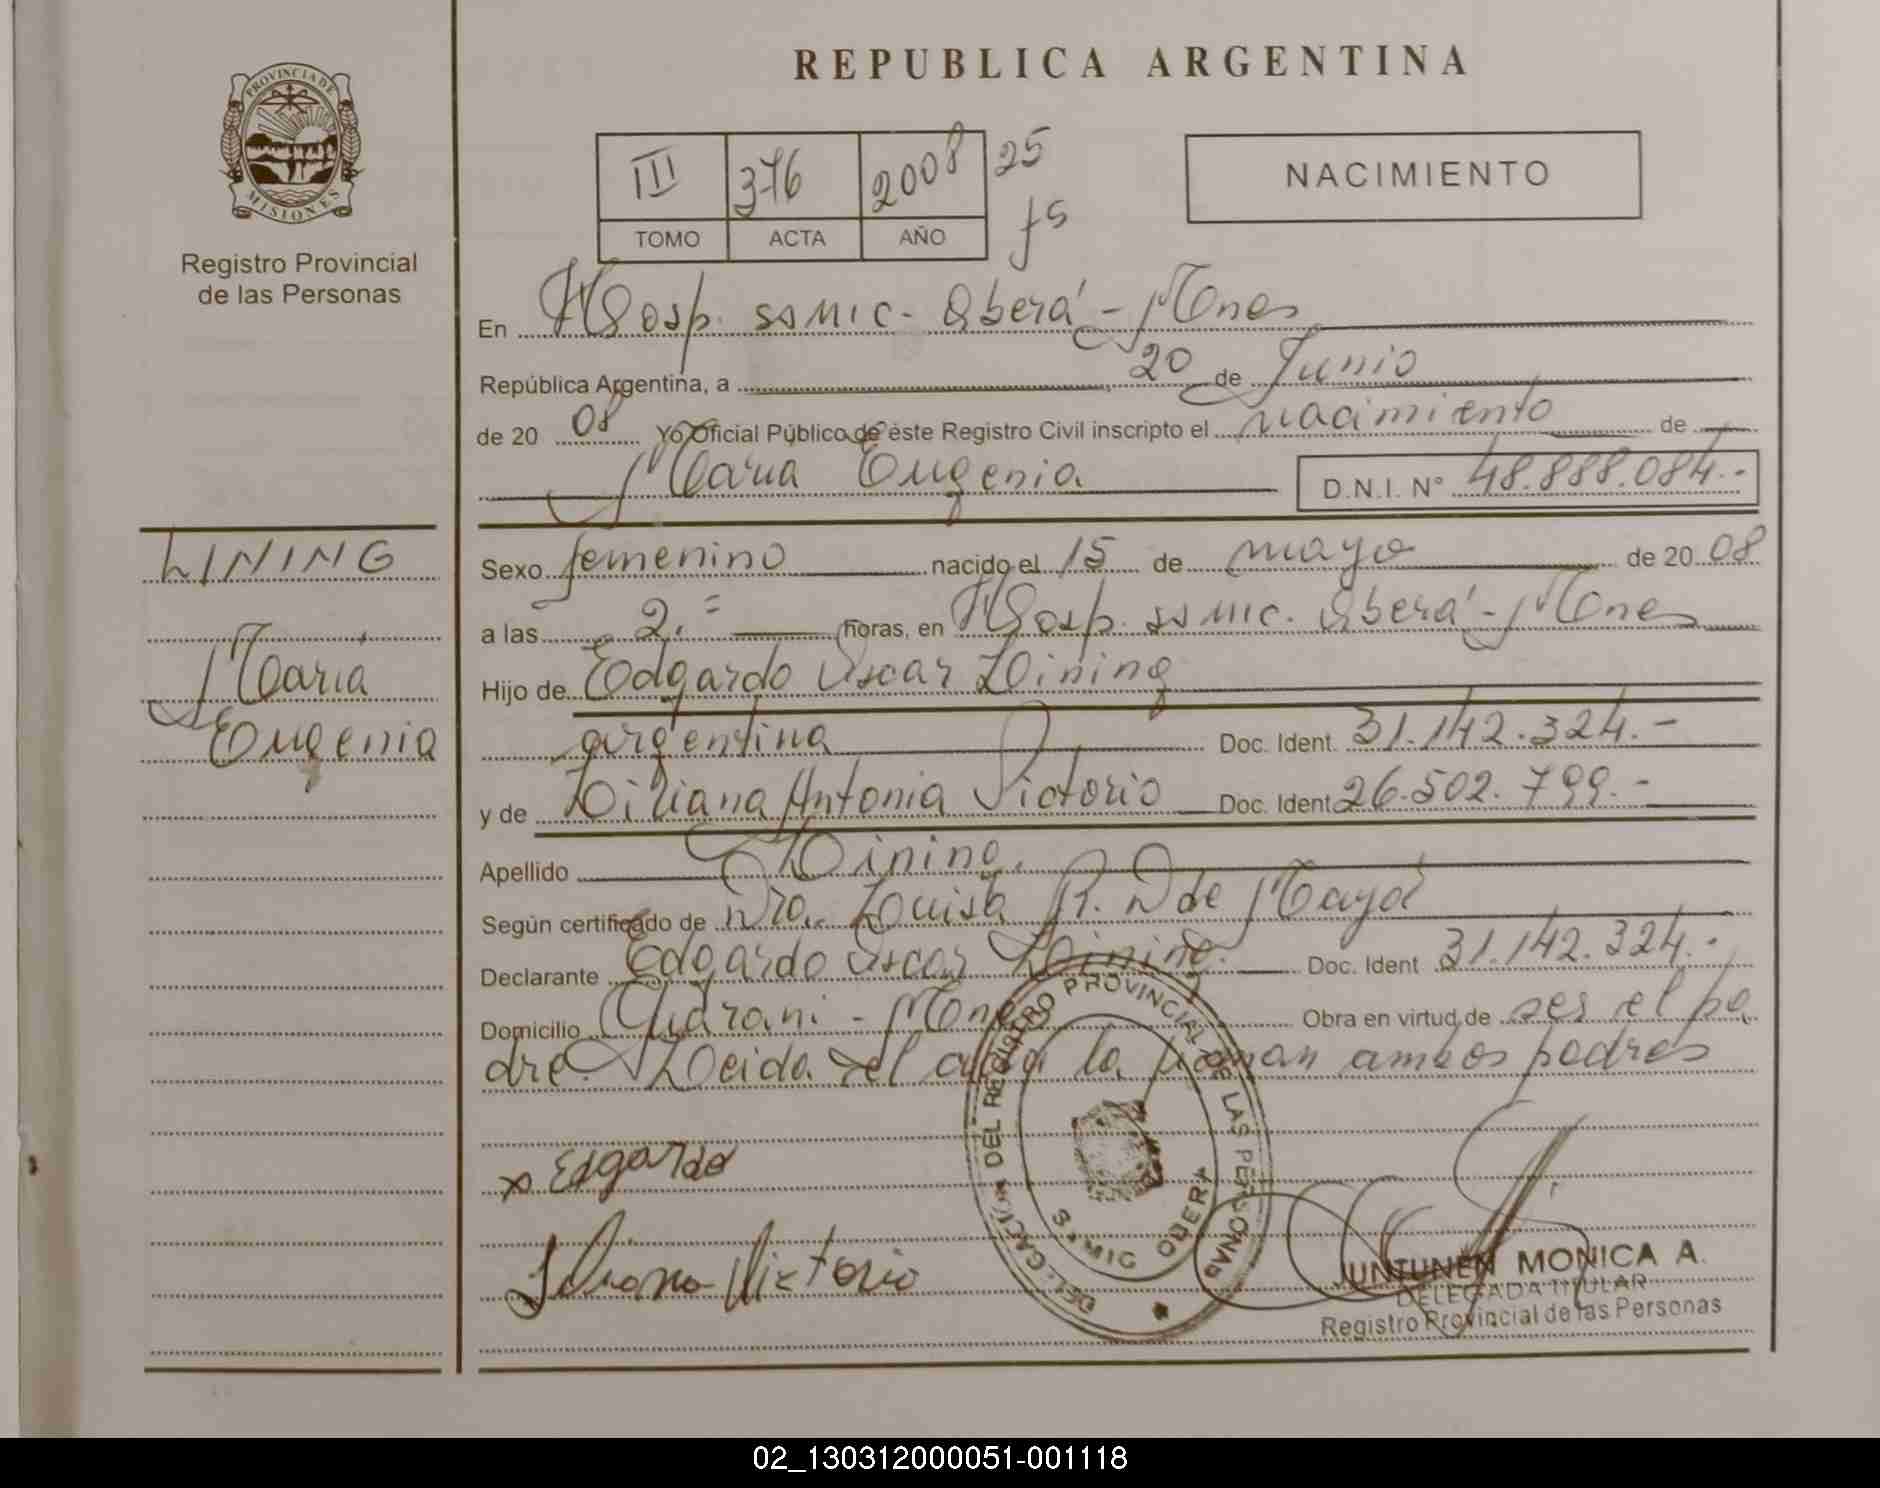 REPUBLICA ARGENTINA
PROVINCIA DE
MISIONES
Registro Provincial
de las Personas
III 376 2008 25
TOMO ACTA AÑO fs
NACIMIENTO
En Hosp. SAMIC - Oberá - Mnes
República Argentina, a 20 de Junio
de 20 08 Yo Oficial Público de éste Registro Civil inscripto el nacimiento de
María Eugenia D.N.I. N° 48.888.084.-
LINING
María
Eugenia
Sexo femenino nacido el 15 de mayo de 20 08
a las 2.= horas, en Hosp. SAMIC. Oberá - Mnes
Hijo de Edgardo Oscar Lining
argentina Doc. Ident. 31.142.324.-
y de Liliana Antonia Victorio Doc. Ident. 26.502.799.-
Apellido Lining.
Según certificado de Dra. Luisa R. D de Mayá
Declarante Edgardo Oscar Lining. Doc. Ident 31.142.324.-
Domicilio Guaraní - Mnes Obra en virtud de ser el pa
dre. Leida del acta la firman ambos padres
x Edgardo
Liliana Victorio
DELEGACIÓN DEL REGISTRO PROVINCIAL DE LAS PERSONAS
SAMIC OBERA
JUNTUNEN MONICA A.
DELEGADA TITULAR
Registro Provincial de las Personas
02_130312000051-001118